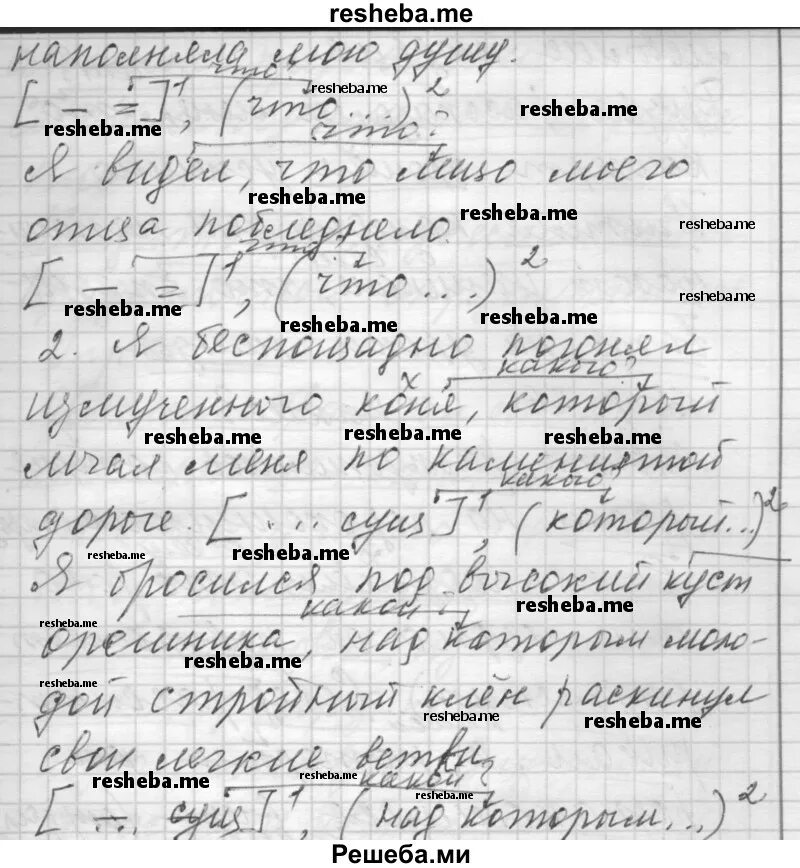 resheba.me
наполняла мою душу.
что
[ — = ]¹, (что...)²
что?
Я видел, что лицо моего
отца побледнело.
что?
[ — = ]¹, (что...)²
2. Я беспощадно погонял
какого?
измученного коня, который
мчал меня по каменистой
какого?
дороге. [ ... сущ ]¹, (который...)²
Я бросился под высокий куст
какой?
орешника, над которым моло-
дой стройный клён раскинул
свои легкие ветви.
какой?
[ —... сущ ]¹, (над которым...)²
Решеба.ми